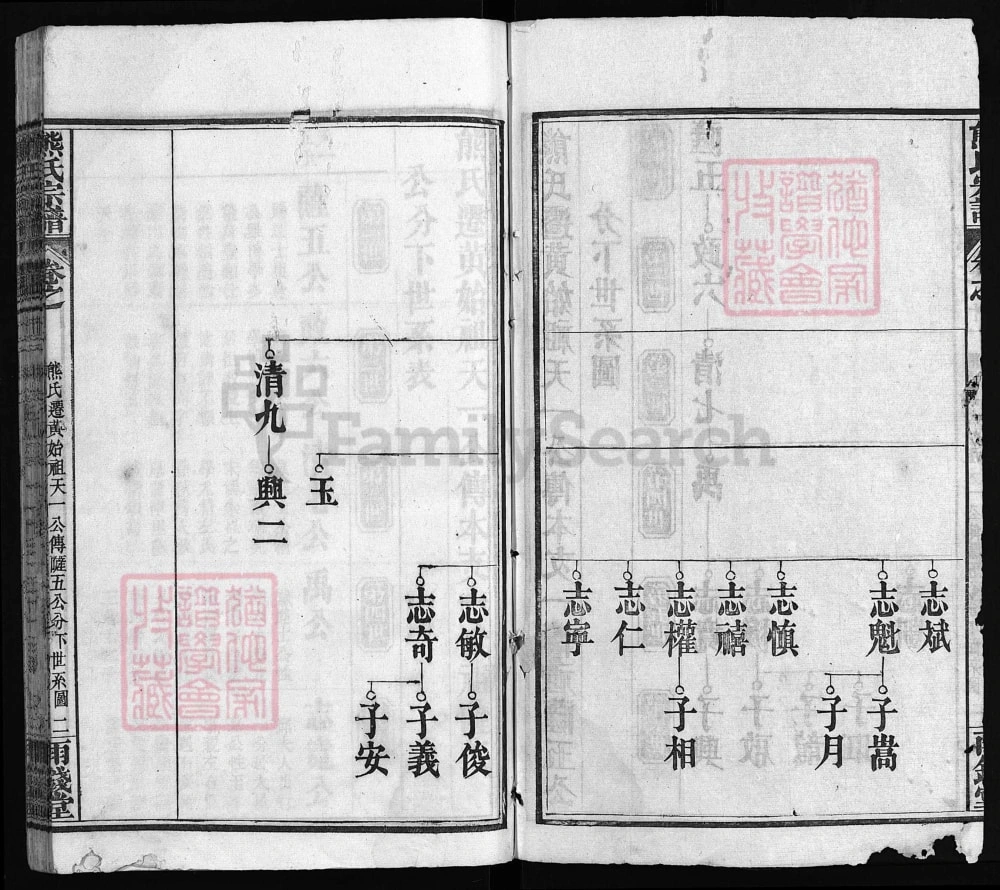 志斌
志魁
子嵩
子月
志慎
志禧
志權
子相
志仁
志寧
志敏
子俊
志奇
子義
子安
玉
清九
興二
熊氏宗譜
卷之
熊氏遷黃始祖天一公傳薩五公分下世系圖
二
雨錢堂
FamilySearch